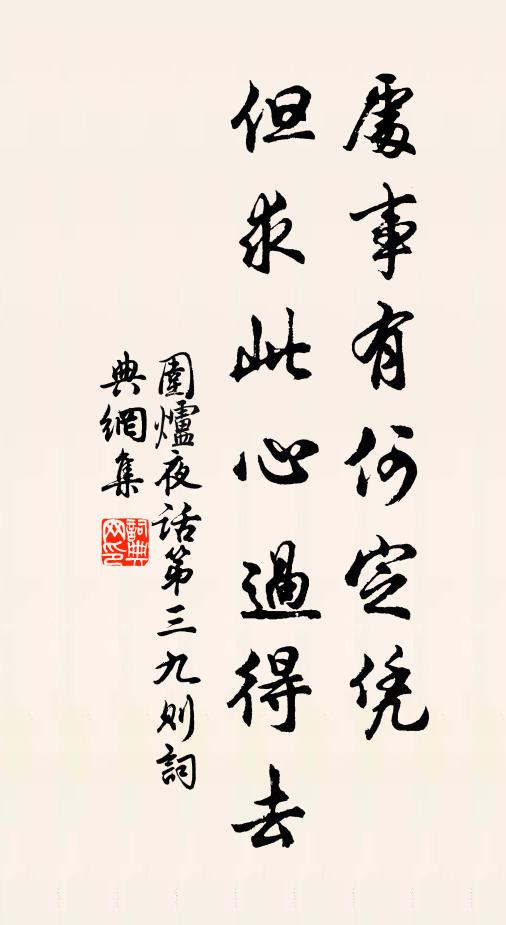 處事有何定凭
但求此心過得去
圍爐夜话第三九则詞
典網集
詞典
网印